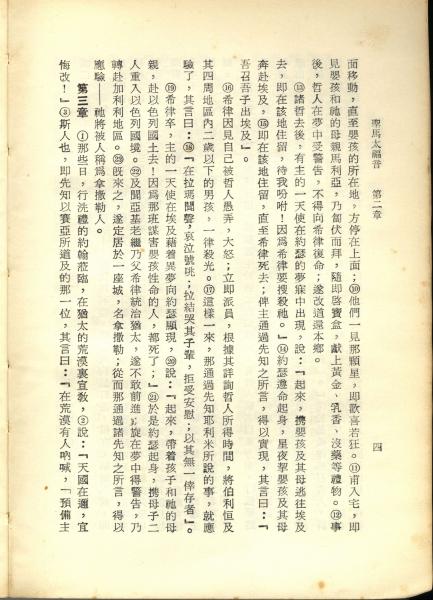 聖馬太福音　第二章
四
面移動，直至嬰孩的所在地，方停在上面；⑩他們一見那顆星，即歡喜若狂。⑪甫入宅，即
見嬰孩和祂的母親馬利亞，乃匍伏而拜，隨即啓寶盒，獻上黃金、乳香、沒藥等禮物。⑫事
後，哲人在夢中受警告，不得向希律復命；遂改道還本鄉。
⑬諸哲去後，有主的一天使在約瑟的夢寐中出現，說：『起來，攜嬰孩及其母逃往埃及
去，即在該地住留，待我吩咐！因爲希律要搜殺祂。』⑭約瑟遵命起身，星夜挈嬰孩及其母
奔赴埃及，⑮即在該地住留，直至希律死去；俾主通過先知之所言，得以實現，其言曰：『
吾召吾子出埃及』。
⑯希律因見自己被哲人愚弄，大怒；立即派員，根據其詳詢哲人所得時間，將伯利恒及
其四周地區內二歲以下的男孩，一律殺光。⑰這樣一來，那通過先知耶利米所說的事，就應
驗了，其言曰：⑱『在拉瑪聞聲，哀泣號咷；拉結哭其子輩，拒受安慰；以其無一倖存者』。
⑲希律卒，主的一天使在埃及藉着異夢向約瑟顯現，⑳說：『起來，帶着孩子和祂的母
親，赴以色列國土去！因爲那班謀害嬰孩性命的人，都死了；』㉑於是約瑟起身，攜母子二
人重入以色列國境。㉒及聞亞基老繼乃父希律統治猶太，遂不敢前進；旋在夢中得警告，乃
轉赴加利利地區。㉓旣來之，遂定居於一座城，名拿撒勒；從而那通過諸先知之所言，得以
應驗——祂將被人稱爲拿撒勒人。
第三章　①那些日，行洗禮的約翰蒞臨，在猶太的荒漠裏宣敎，②說：『天國在邇，宜
悔改！』③斯人也，即先知以賽亞所道及的那一位，其言曰：『在荒漠有人吶喊，「預備主